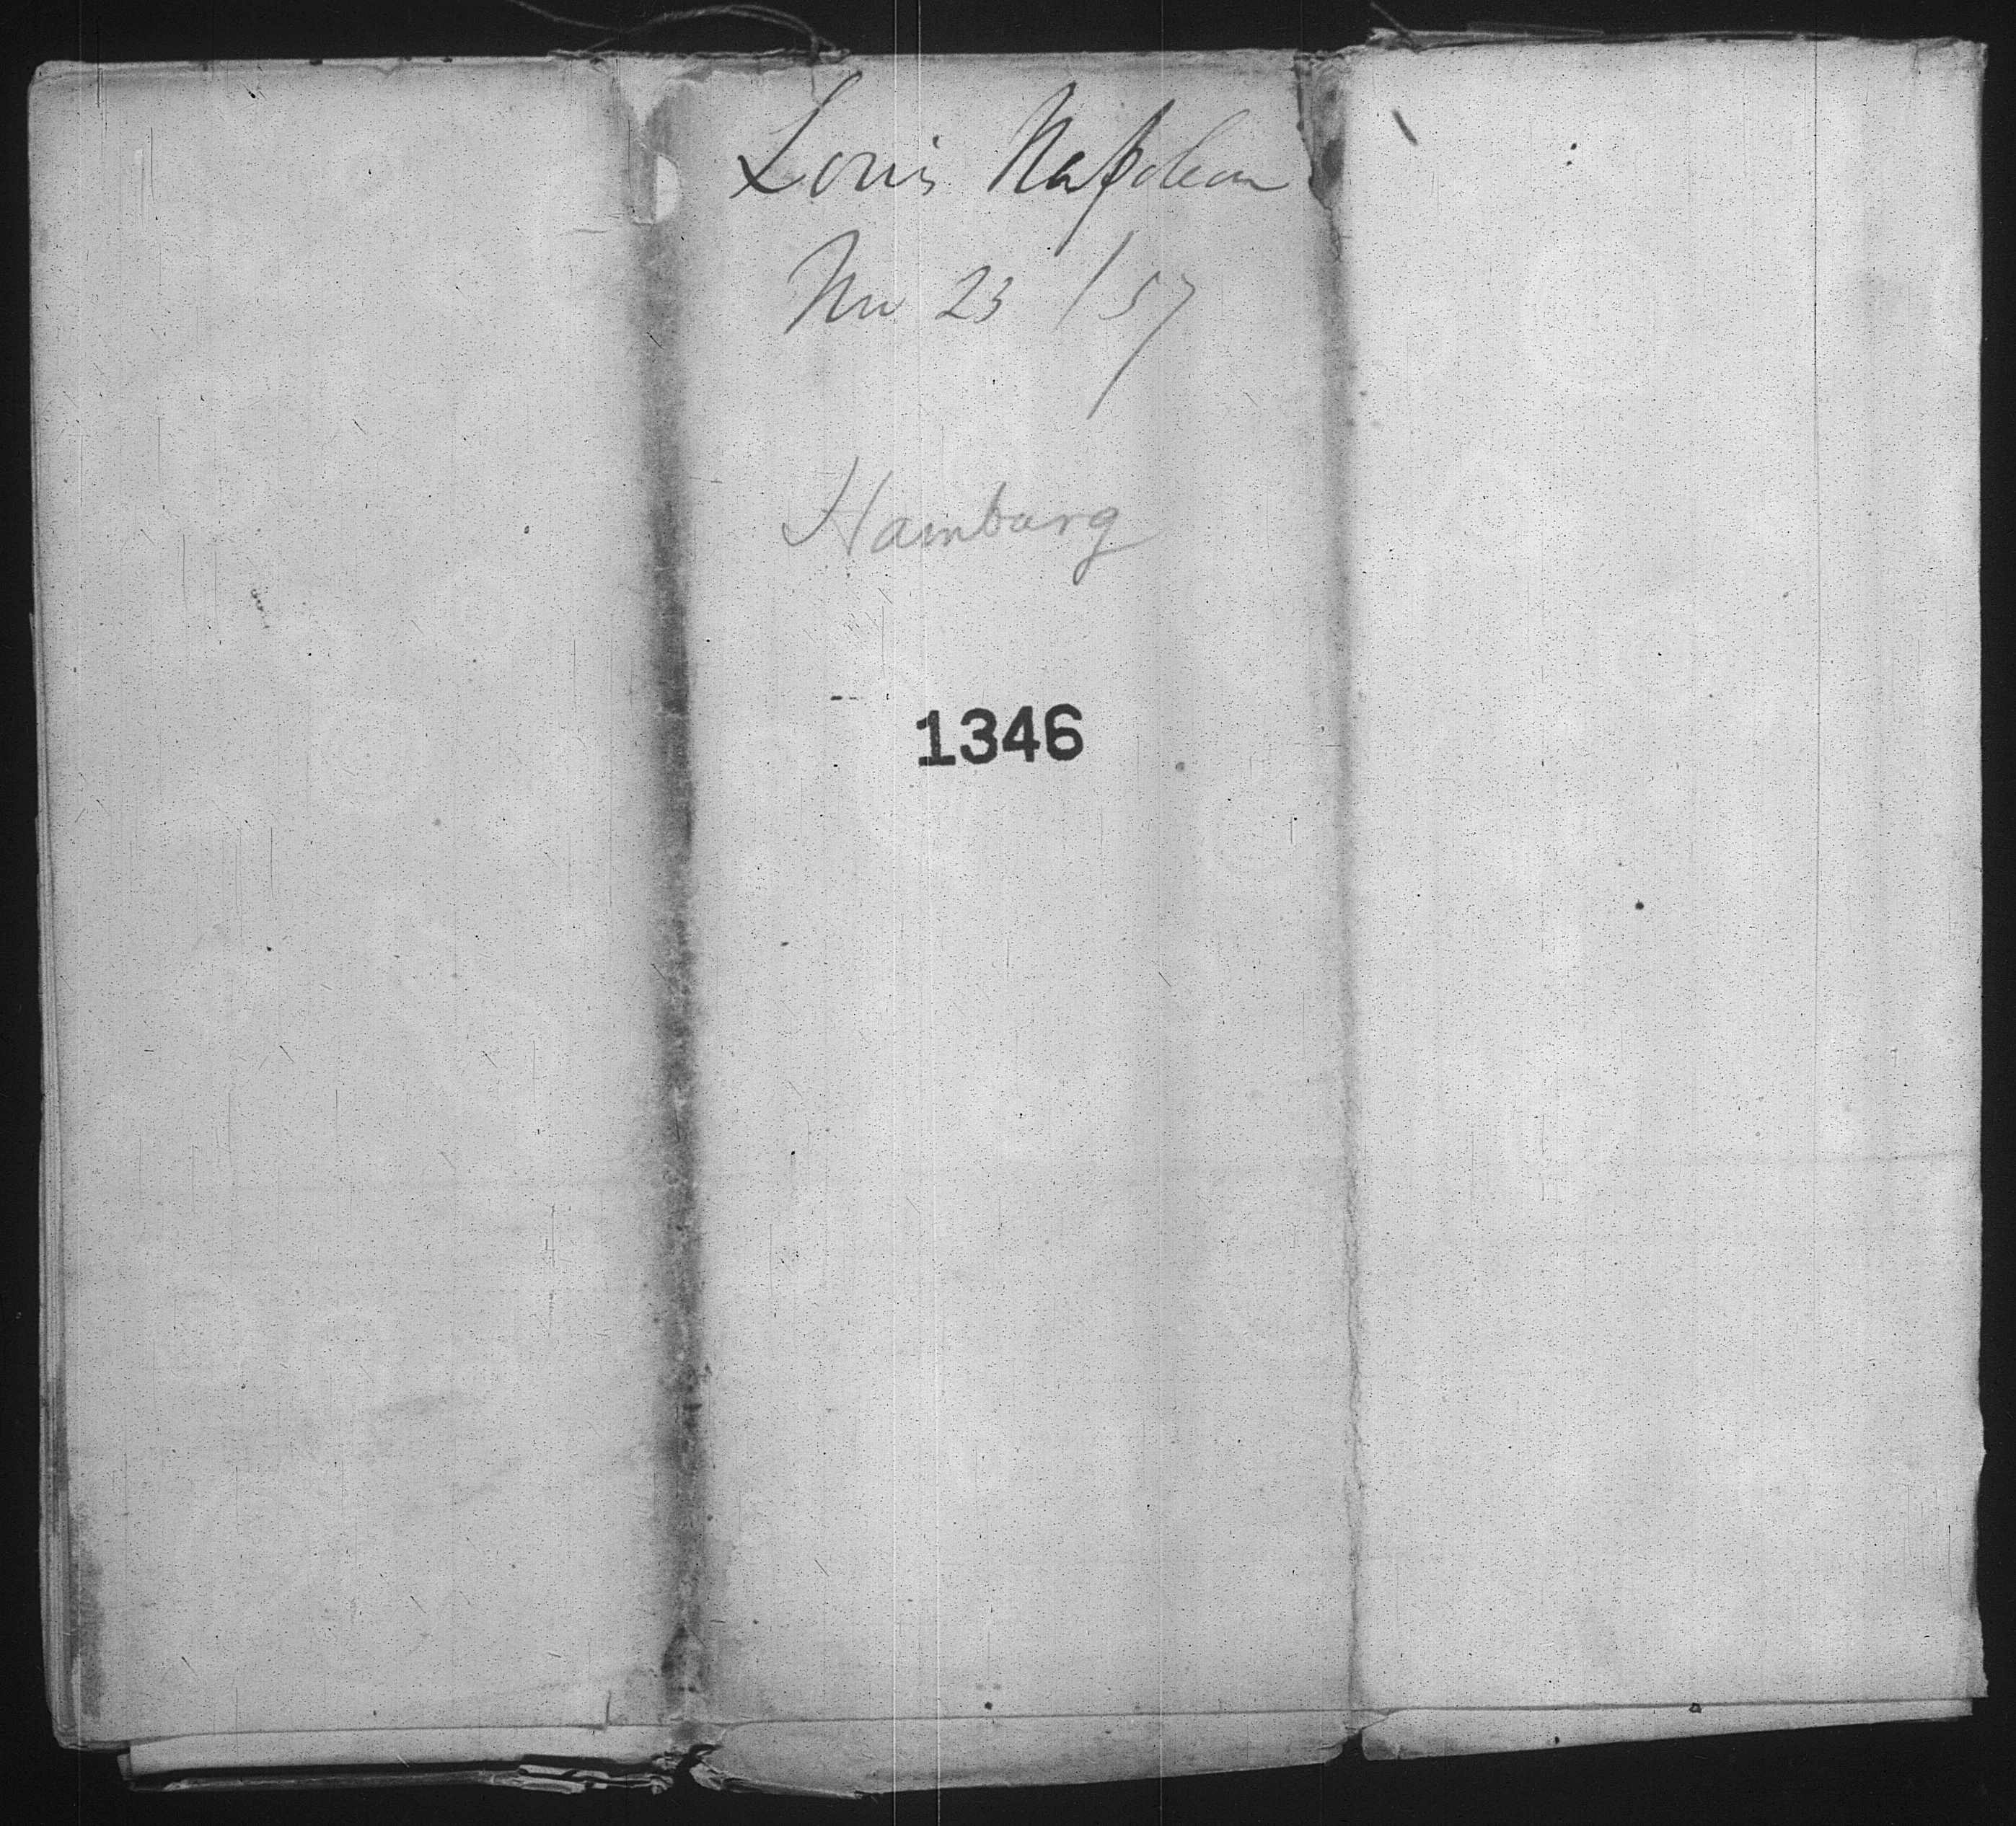 Louis Napoleon
Nov 23 / 57
Hamburg
1346